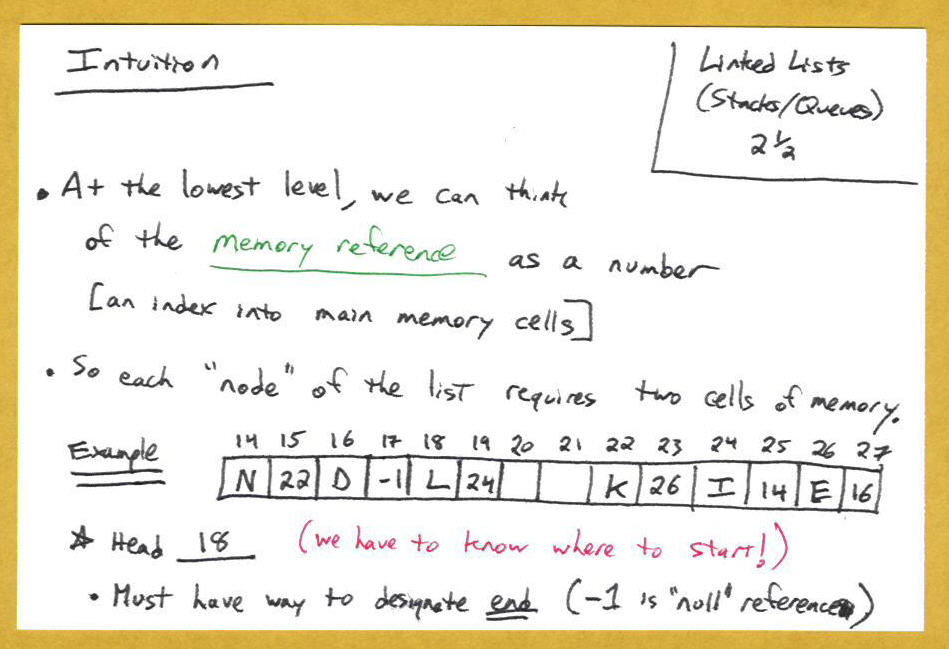 Intuition
Linked Lists
(Stacks/Queues)
2 ½
• At the lowest level, we can think
of the memory reference as a number
[an index into main memory cells]
• So each "node" of the list requires two cells of memory.
Example
14 15 16 17 18 19 20 21 22 23 24 25 26 27
N 22 D -1 L 24 K 26 I 14 E 16
☆ Head 18 (we have to know where to start!)
• Must have way to designate end (-1 is "null" reference)